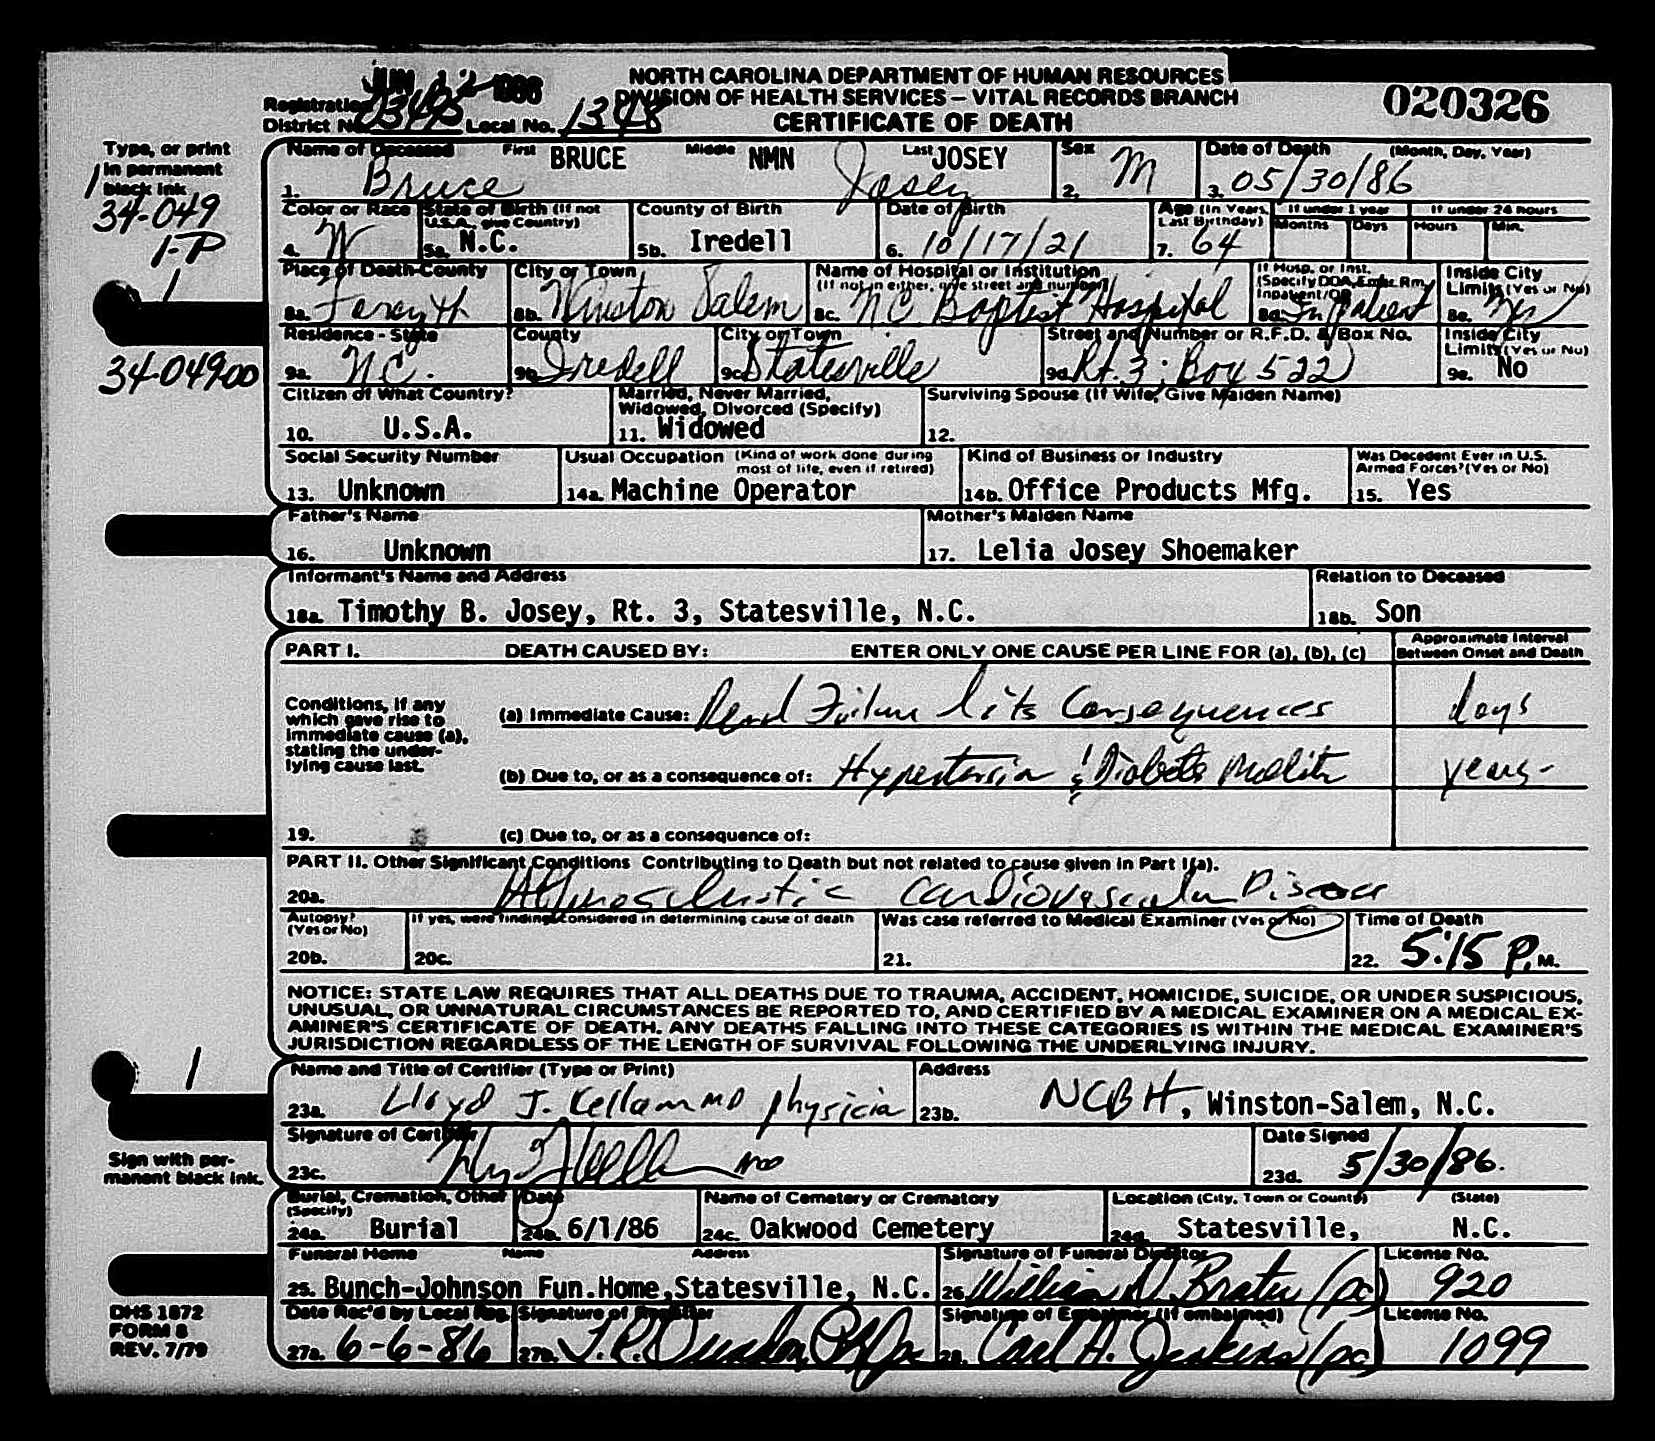 JUN 12 1986
NORTH CAROLINA DEPARTMENT OF HUMAN RESOURCES
DIVISION OF HEALTH SERVICES — VITAL RECORDS BRANCH
CERTIFICATE OF DEATH
020326
Registration District No. Local No. 1348
Type, or print in permanent black ink
34-049
1-P
1
34-049 00
Name of Deceased First BRUCE Middle NMN Last JOSEY
1. Bruce Josey
Sex 2. M
Date of Death (Month, Day, Year) 3. 05/30/86
Color or Race 4. W
State of Birth (If not U.S.A., give Country) 5a. N.C.
County of Birth 5b. Iredell
Date of Birth 6. 10/17/21
Age (In Years, Last Birthday) 7. 64
If under 1 year Months Days
If under 24 hours Hours Min.
Place of Death-County 8a. Forsyth
City or Town 8b. Winston Salem
Name of Hospital or Institution (If not in either, give street and number) 8c. NC Baptist Hospital
If Hosp. or Inst. (Specify DOA, Emer. Rm, Inpatient/OP 8d. In Patient
Inside City Limits (Yes or No) 8e. Yes
Residence - State 9a. N.C.
County 9b. Iredell
City or Town 9c. Statesville
Street and Number or R.F.D. & Box No. 9d. Rt. 3; Box 522
Inside City Limits (Yes or No) 9e. No
Citizen of What Country? 10. U.S.A.
Married, Never Married, Widowed, Divorced (Specify) 11. Widowed
Surviving Spouse (If Wife, Give Maiden Name) 12.
Social Security Number 13. Unknown
Usual Occupation (Kind of work done during most of life, even if retired) 14a. Machine Operator
Kind of Business or Industry 14b. Office Products Mfg.
Was Decedent Ever in U.S. Armed Forces? (Yes or No) 15. Yes
Father's Name 16. Unknown
Mother's Maiden Name 17. Lelia Josey Shoemaker
Informant's Name and Address 18a. Timothy B. Josey, Rt. 3, Statesville, N.C.
Relation to Deceased 18b. Son
PART I. DEATH CAUSED BY: ENTER ONLY ONE CAUSE PER LINE FOR (a), (b), (c)
Approximate Interval Between Onset and Death
Conditions, if any which gave rise to immediate cause (a), stating the underlying cause last.
(a) Immediate Cause: Renal Failure & its Consequences days
(b) Due to, or as a consequence of: Hypertension & Diabetes Mellitus years
19. (c) Due to, or as a consequence of:
PART II. Other Significant Conditions Contributing to Death but not related to cause given in Part I(a).
20a. Atherosclerotic Cardiovascular Disease
Autopsy? (Yes or No) 20b.
If yes, were findings considered in determining cause of death 20c.
Was case referred to Medical Examiner (Yes or No) 21.
Time of Death 22. 5:15 P.M.
NOTICE: STATE LAW REQUIRES THAT ALL DEATHS DUE TO TRAUMA, ACCIDENT, HOMICIDE, SUICIDE, OR UNDER SUSPICIOUS,
UNUSUAL, OR UNNATURAL CIRCUMSTANCES BE REPORTED TO, AND CERTIFIED BY A MEDICAL EXAMINER ON A MEDICAL EX-
AMINER'S CERTIFICATE OF DEATH. ANY DEATHS FALLING INTO THESE CATEGORIES IS WITHIN THE MEDICAL EXAMINER'S
JURISDICTION REGARDLESS OF THE LENGTH OF SURVIVAL FOLLOWING THE UNDERLYING INJURY.
1
Name and Title of Certifier (Type or Print) 23a. Lloyd J. Kellam MD physician
Address 23b. NCBH, Winston-Salem, N.C.
Sign with permanent black ink.
Signature of Certifier 23c.
Date Signed 23d. 5/30/86.
Burial, Cremation, Other (Specify) 24a. Burial
Date 24b. 6/1/86
Name of Cemetery or Crematory 24c. Oakwood Cemetery
Location (City, Town or County) (State) 24d. Statesville, N.C.
Funeral Home Name Address 25. Bunch-Johnson Fun.Home,Statesville, N.C.
Signature of Funeral Director 26.
License No. 920
DHS 1872
FORM 8
REV. 7/79
Date Rec'd by Local Reg. 27a. 6-6-86
Signature of Registrar 27b.
Signature of Embalmer (If embalmed) 28. Carl A. Jenkins (pc)
License No. 1099